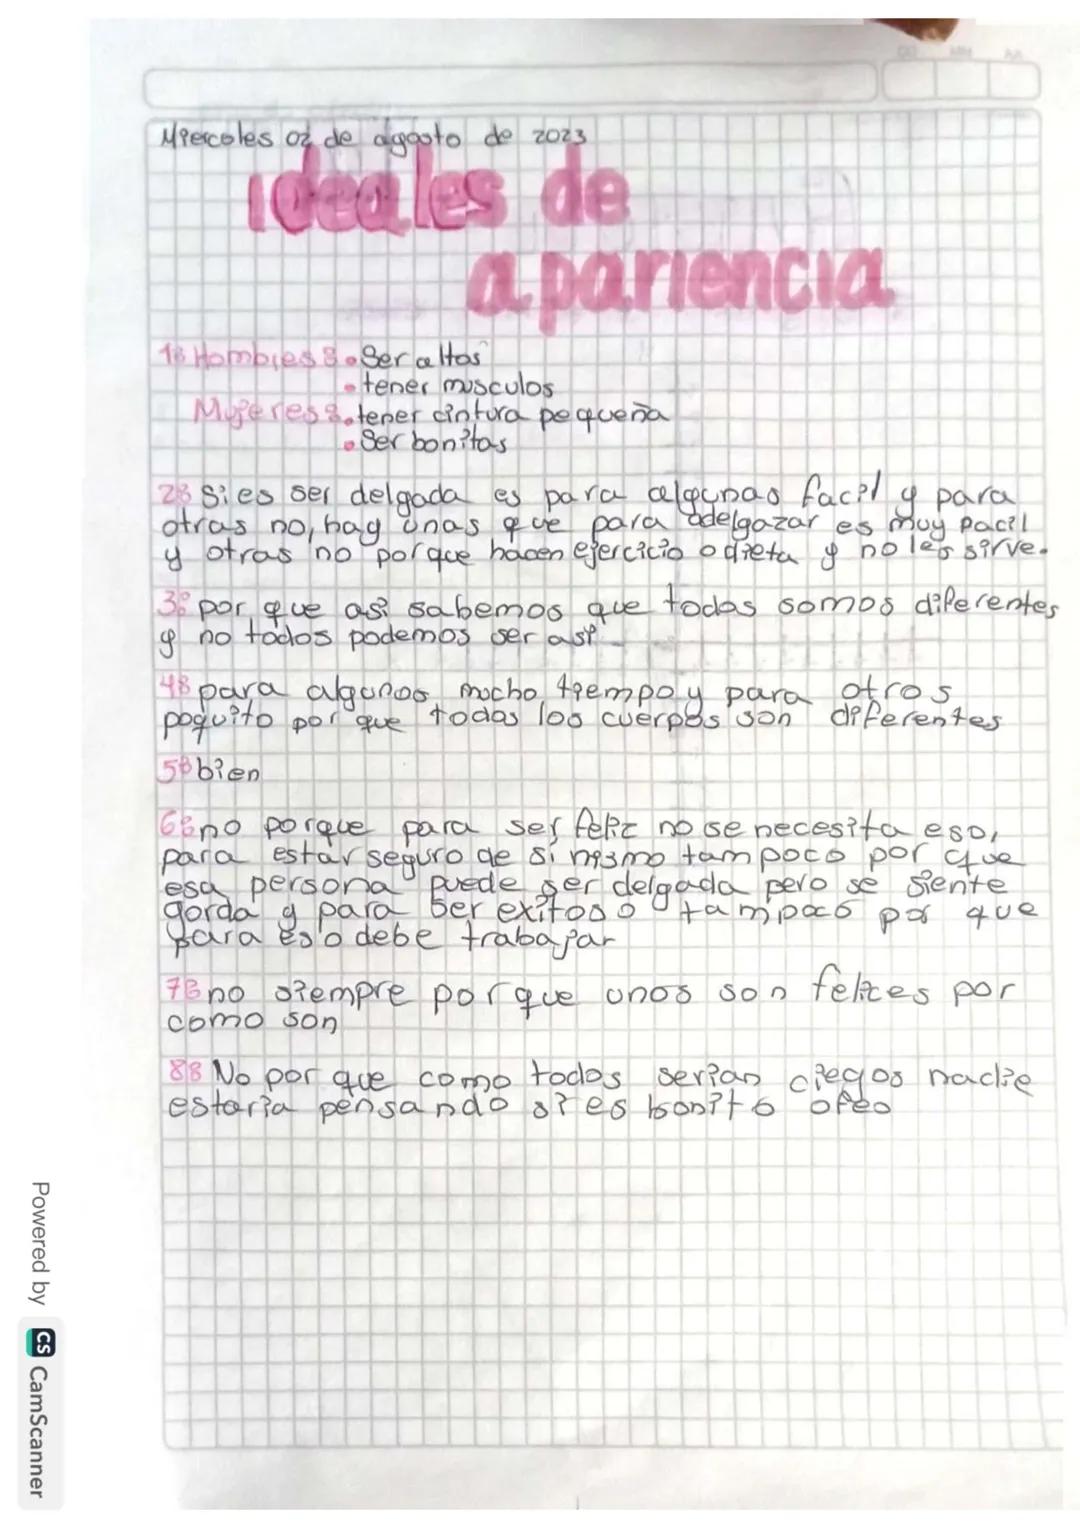 DD MM AA
Miercoles 02 de agosto de 2023
ideales de
apariencia
1: Hombres: • Ser altos
• tener musculos
Mujeres: • tener cintura pequeña
• Ser bonitas
2: Si es ser delgada es para algunas facil y para
otras no, hay unas que para adelgazar es muy facil
y otras no porque hacen ejercicio o dieta y no les sirve.
3: por que asi sabemos que todos somos diferentes
y no todos podemos ser asi
4: para algunos mucho tiempo y para otros
poquito por que todas los cuerpos son diferentes
5: bien
6: no porque para ser feliz no se necesita eso,
para estar seguro de si mismo tampoco por que
esa persona puede ser delgada pero se siente
gorda y para ser exitoso tampoco por que
para eso debe trabajar
7: no siempre porque unos son felices por
como son
8: No por que como todos serian ciegos nadie
estaria pensando si es bonito o feo
Powered by CS CamScanner